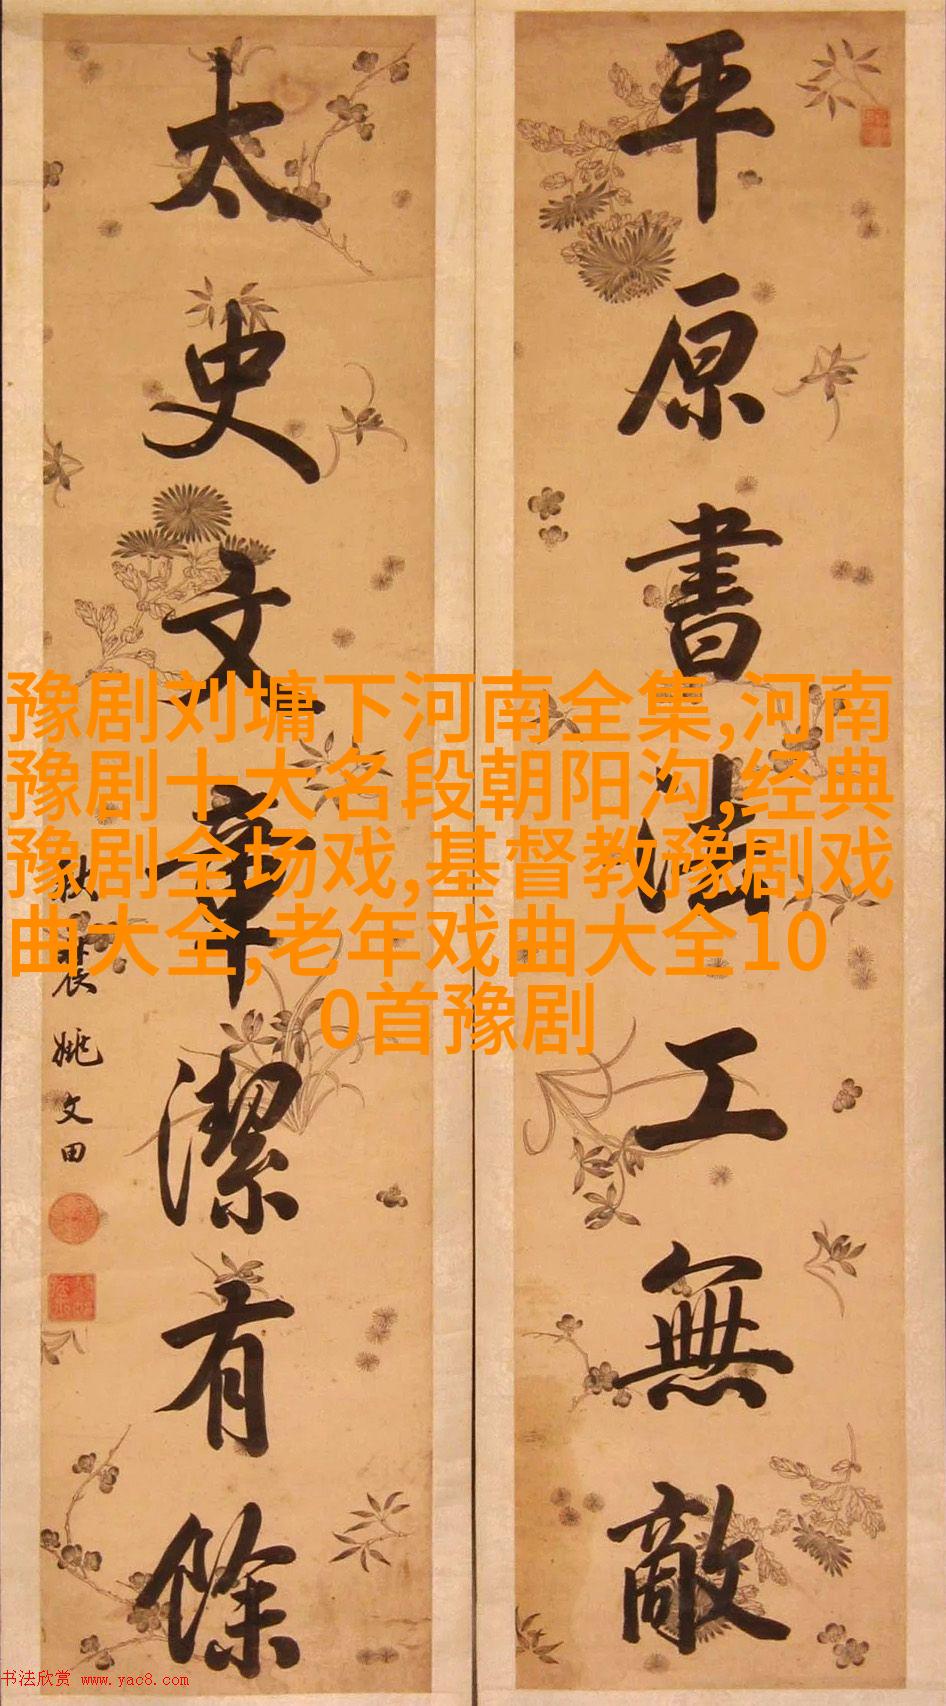 平原書法工無敵
太史文章潔有餘
秋農姚文田
豫剧刘墉下河南全集,河南
豫剧十大名段朝阳沟,经典
豫剧全场戏,基督教豫剧戏
曲大全,老年戏曲大全10
0首豫剧
书法欣赏 www.yac8.com